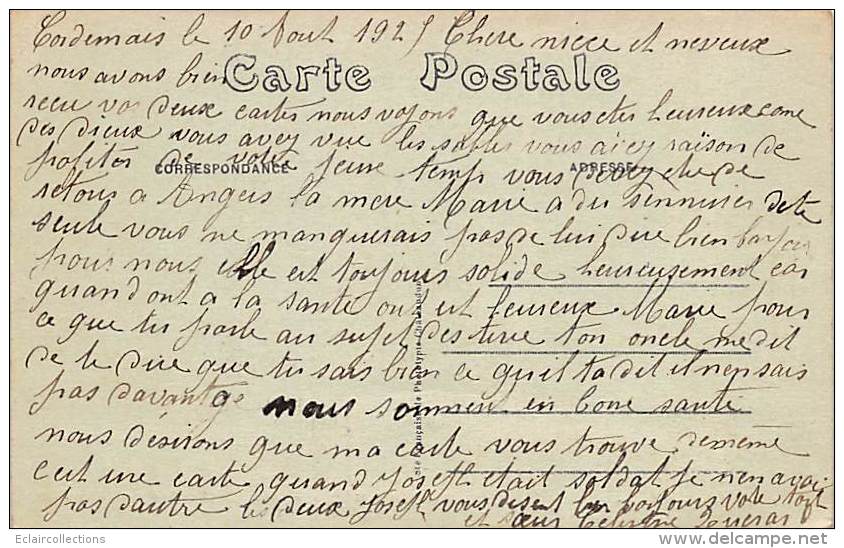 Cordemais le 10 Aout 192 Chere niece et neveux
nous avons bien
Carte Postale
recu vos deux cartes nous voyons que vous etes heureux come
des dieux vous avez vue les sables vous avez raison de
profiter de votre jeune temp vous devez etre de
CORRESPONDANCE
ADRESSE
retour a Angers la mere Marie a du sennuier dete
seule vous ne manquerais pas de lui dire bien
pour nous elle est toujours solide heureusement car
quand ont a la sante ont est heureux Marie pour
ce que tu parle au sujet des tire ton oncle me dit
de te dire que tu sais bien ce quil ta dit il nen sais
pas davantage nous sommes en bone santé
nous désirons que ma carte vous trouve deméme
cest une carte quand Joseph était soldat je nen avai
pas dautre les deux Joseph vous disent bien votre
et sœur
Eclaircollections
www.delcampe.net